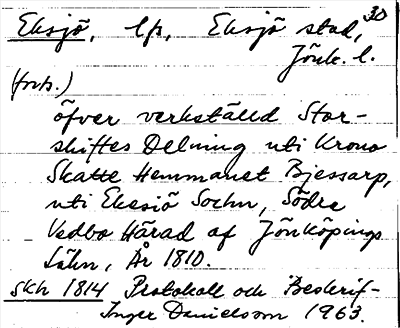 Eksjö, lfs, Eksjö stad, 30
Jönk. l.
(forts.)
öfver verkställd Stor-
skiftes Delning uti Krono
Skatte Hemmanet Bjessarp,
uti Eksiö Sochn, Södra
Vedbo Härad af Jönköpings
Lähn, År 1810.
skh 1814 Protokoll och Beskrif-
Inger Danielsson 1963.